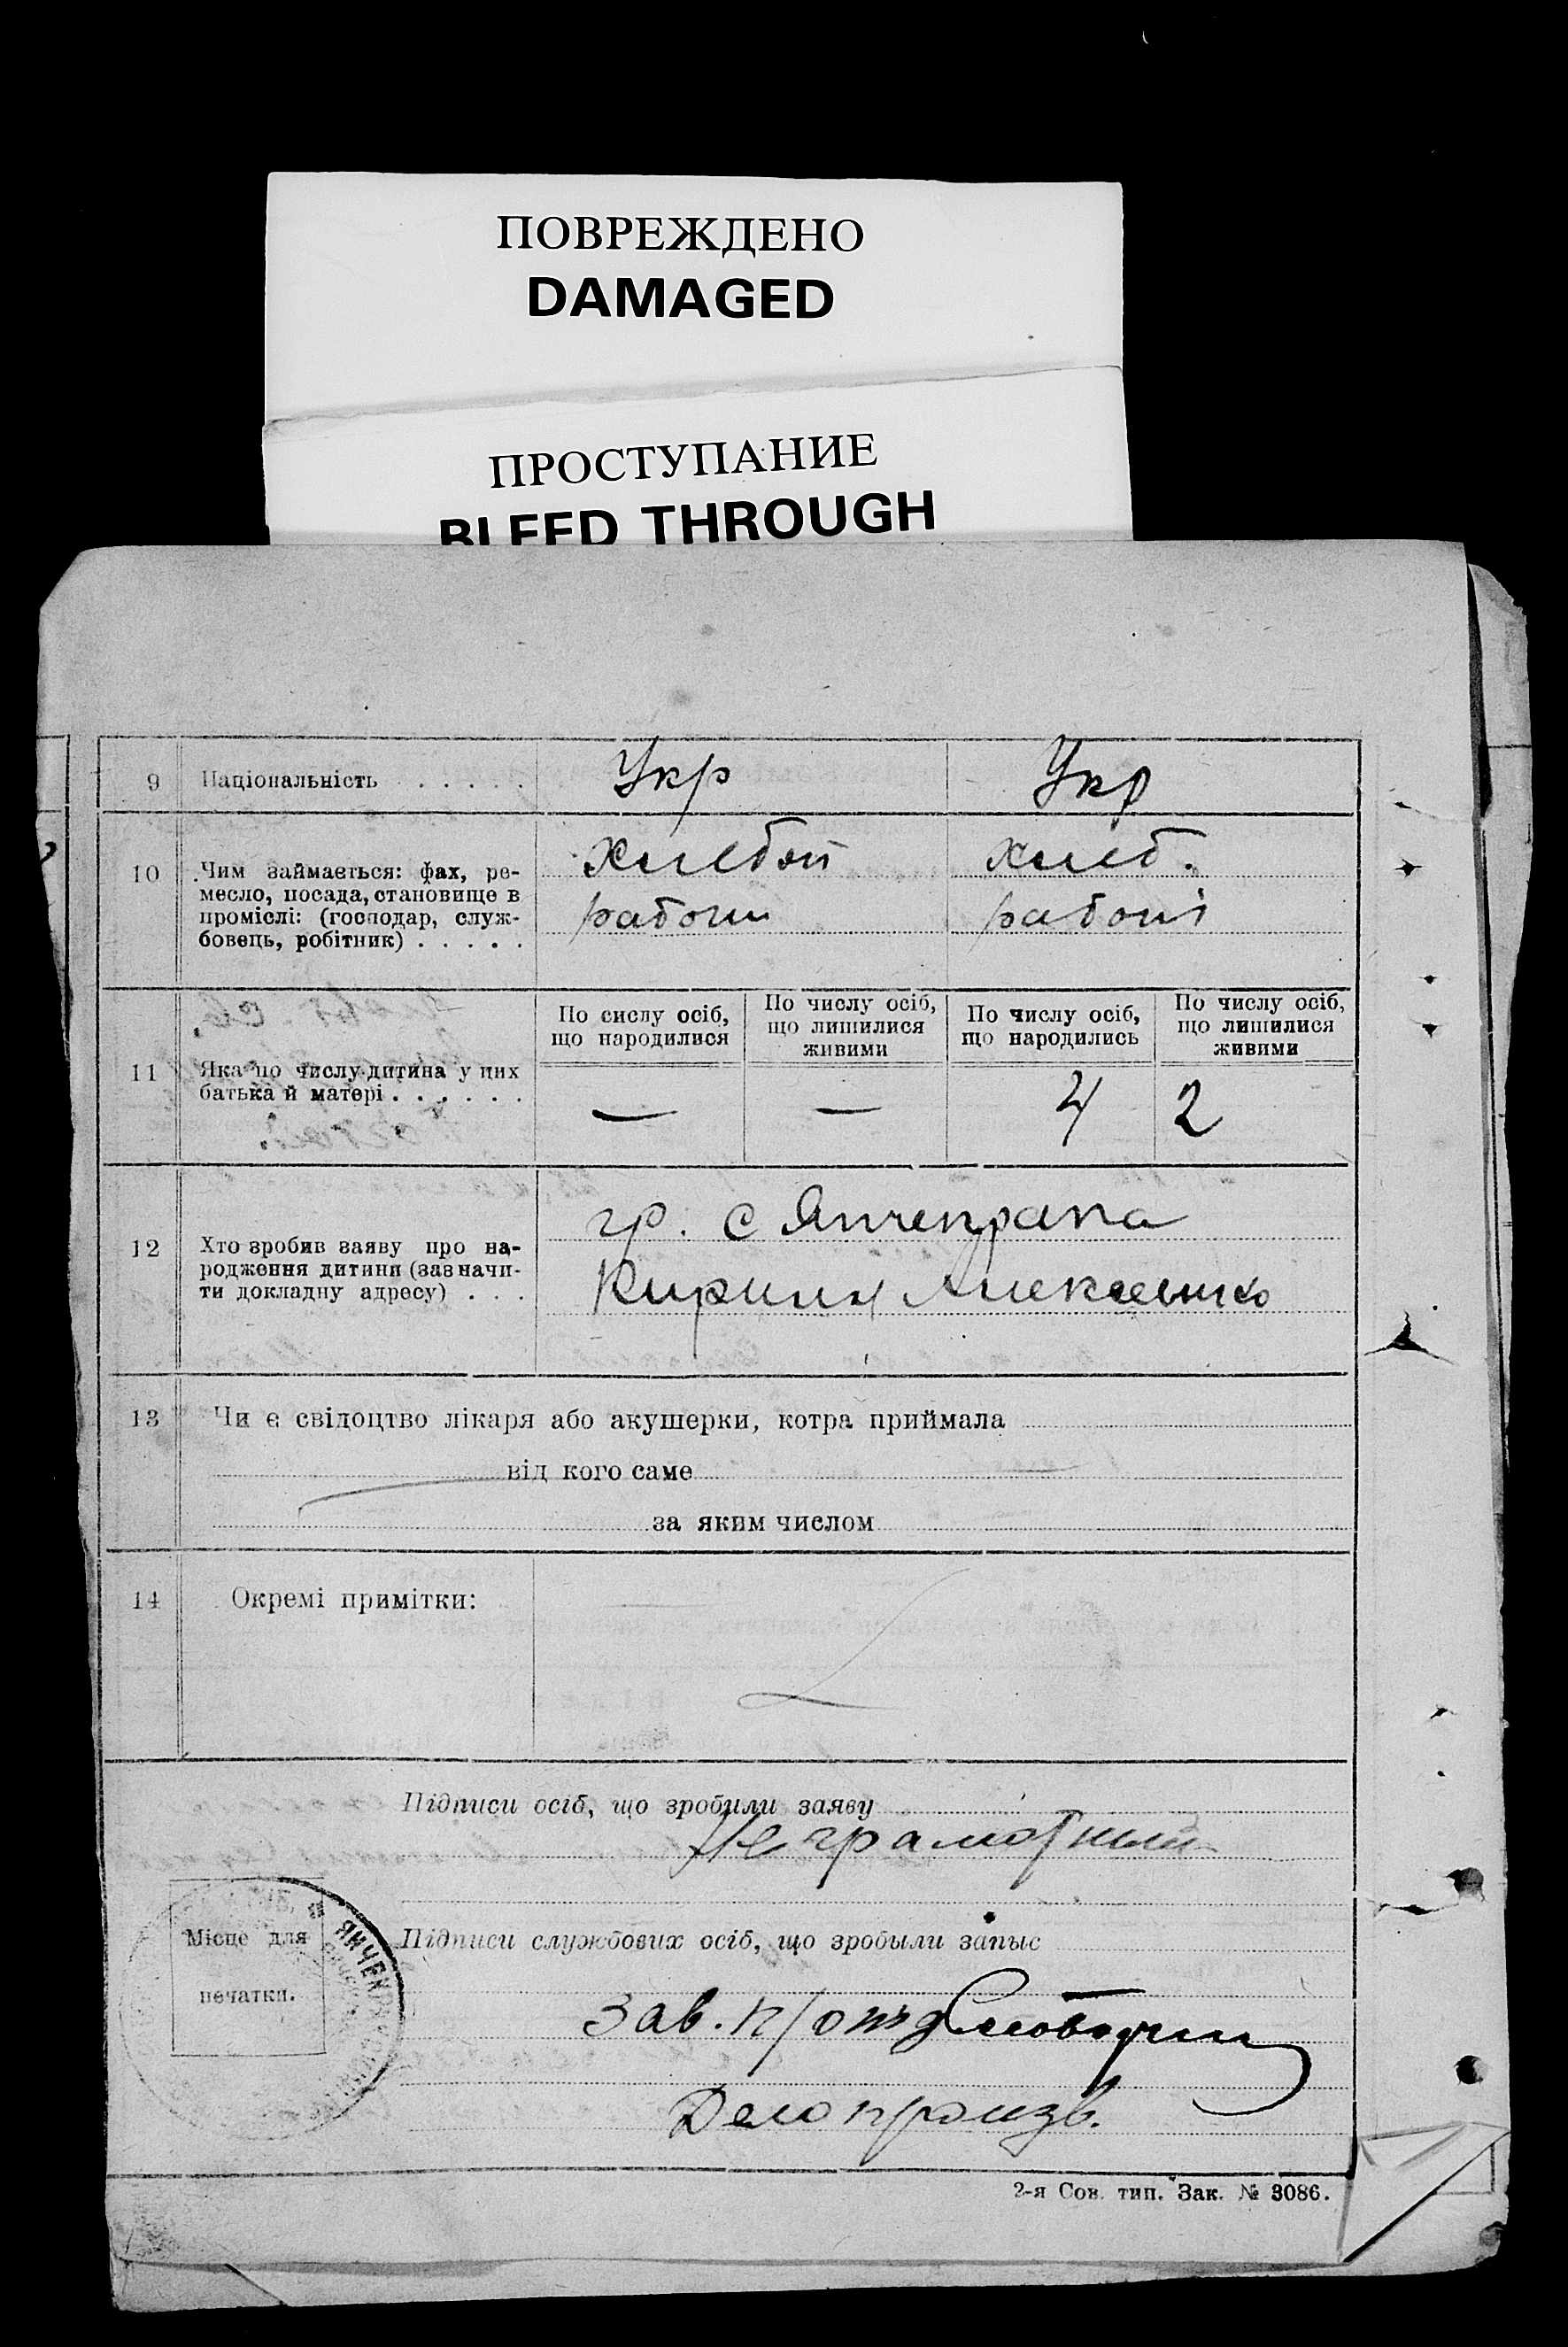 ПОВРЕЖДЕНО
DAMAGED
ПРОСТУПАНИЕ
BLEED THROUGH
9 Національність . . . . . Укр Укр
10 Чим займається: фах, ре-
месло, посада, становище в
проміслі: (господар, служ-
бовець, робітник) . . . . .
хлеб.
работи работі
11 Яка по числу дитина у цих
батька й матері . . . . . .
По сислу осіб,
що народилися
По числу осіб,
що лишилися
живими
По числу осіб,
що народились
По числу осіб,
що лишилися
живими
— — 4 2
12 Хто зробив заяву про на-
родження дитини (зазначи-
ти докладну адресу) . . .
гр. с Янчекрака
Кирилл Алексеенко
13 Чи є свідоцтво лікаря або акушерки, котра приймала
від кого саме
за яким числом
14 Окремі примітки:
Підписи осіб, що зробили заяву
Неграмотный
Місце для
печатки.
ЯНЧЕК
Підписи службових осіб, що зробыли запыс
Зав. п/отд
Делопроизв.
2-я Сов. тип. Зак. № 3086.